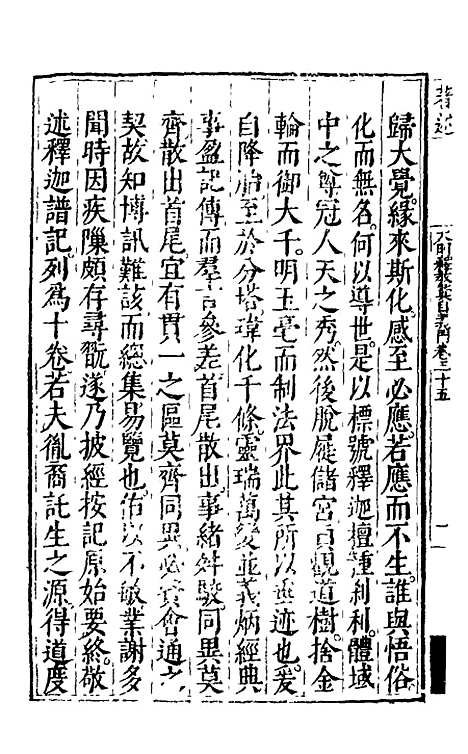 歸大覺緣來斯化感至必應若應而不生誰與悟俗
化而無名何以導世是以標號釋迦檀種刹利體域
中之尊冠人天之秀然後脫屣儲宮真觀道樹捨金
輪而御大千明玉毫而制法界此其所以垂迹也爰
自降胎至於分塔瑋化千條靈瑞萬變並義炳經典
事盈記傳而羣言參差首尾散出事緒舛駁同異莫
齊散出首尾宜有貫一之區莫齊同異必資會通之
契故知博訊難該而總集易覽也佑以不敏業謝多
聞時因疾隟頗存尋翫遂乃披經按記原始要終敬
述釋迦譜記列爲十卷若夫胤裔託生之源得道度
卷三十五